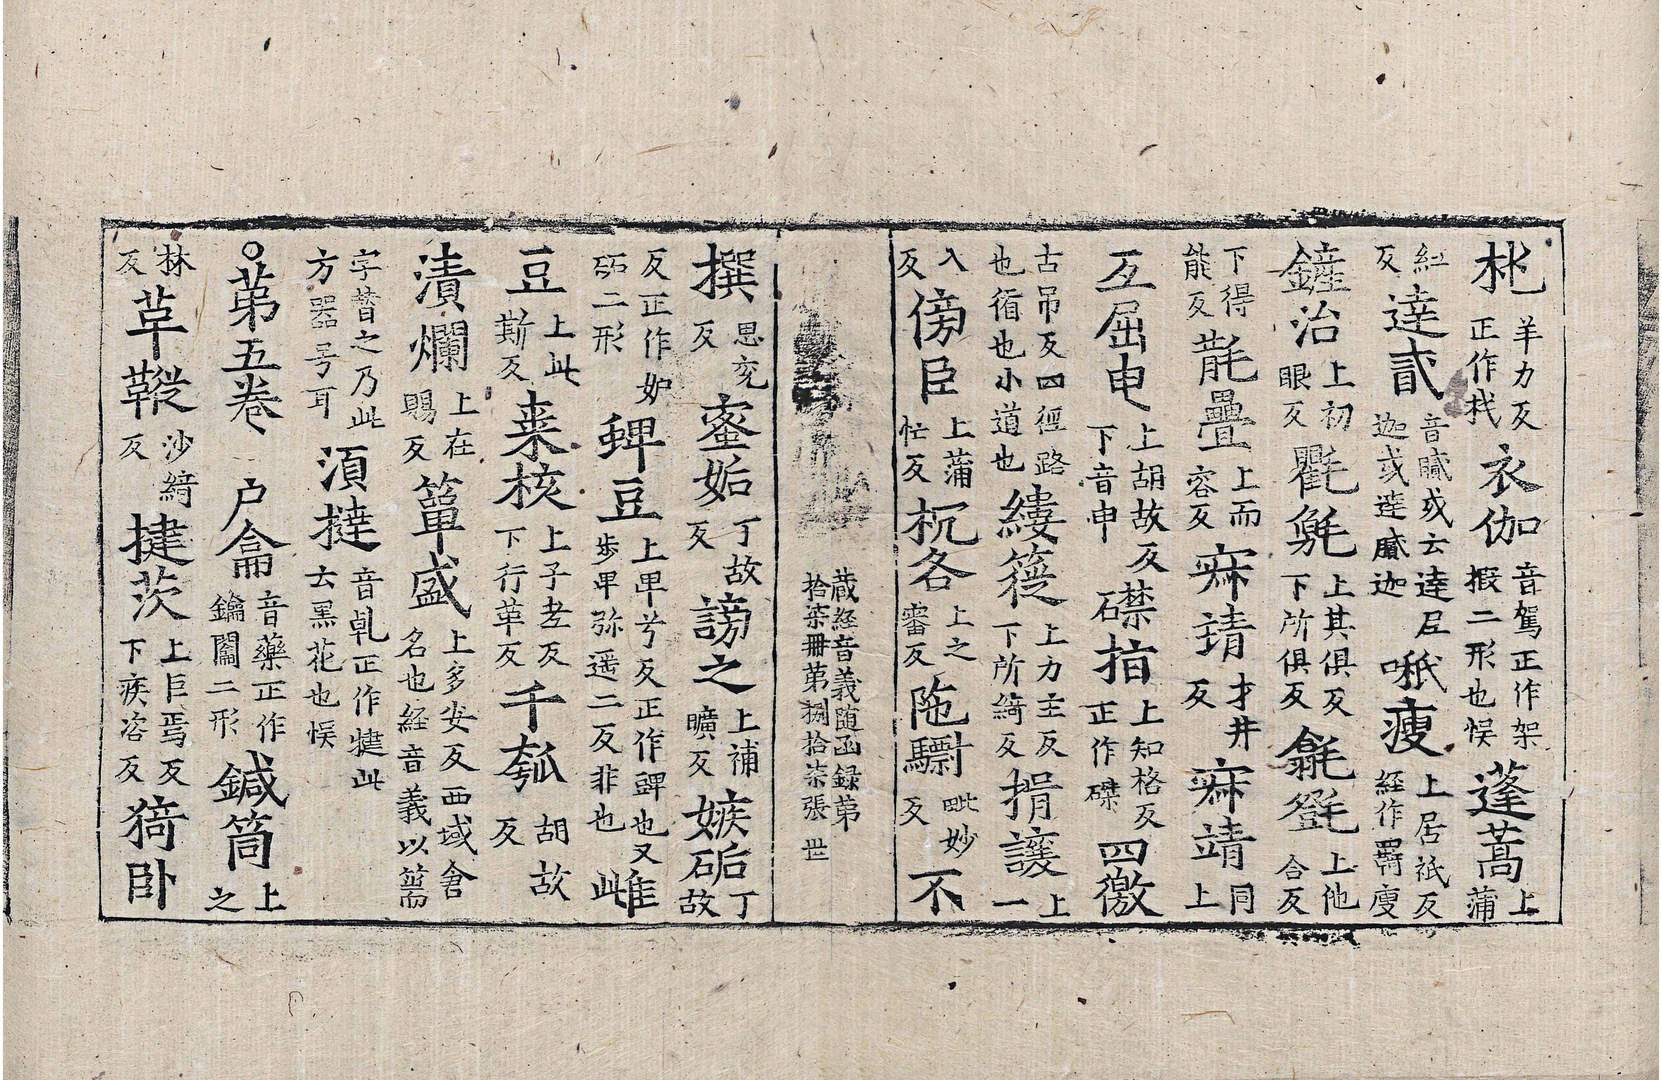 杝羊力反正作杙衣伽音駕正作架椵二形也悮蓬蒿上蒲
紅反達貳音膩或云達尼迦或達膩迦𠯈瘦上居祇反經作羇廋
鏟治上初眼反氍㲣上其俱反下所俱反㲩㲪上他合反
下得能反㲨疊上而容反寐請才井反寐靖同上
互屈申上胡故反下音申磔拍上知格反正作磔四徼
古吊反四徑路也循也小道也縷簁上力主反下所綺反揖讓上一
入反傍臣上蒲忙反枕各上之審反陁驃毗妙反不
藏經音義随函録第拾柒冊第捌拾柒張 世
撰思兖反蜜妬丁故反謗之上補曠反嫉妬丁故
反正作妒妬二形蜱豆上卑兮反正作蜱也又步卑弥遥二反非也雌
豆上此斯反枣核上子老反下行革反千瓠胡故反
漬爛上在賜反簞盛上多安反西域舍名也經音義以篅
字替之乃此方器号耳湏㨗音乹正作犍此云黑花也悮
○第五卷 户龠音藥正作鑰闔二形鍼筒上之
林反草鞾沙綺反揵茨上巨焉反下疾咨反猗卧